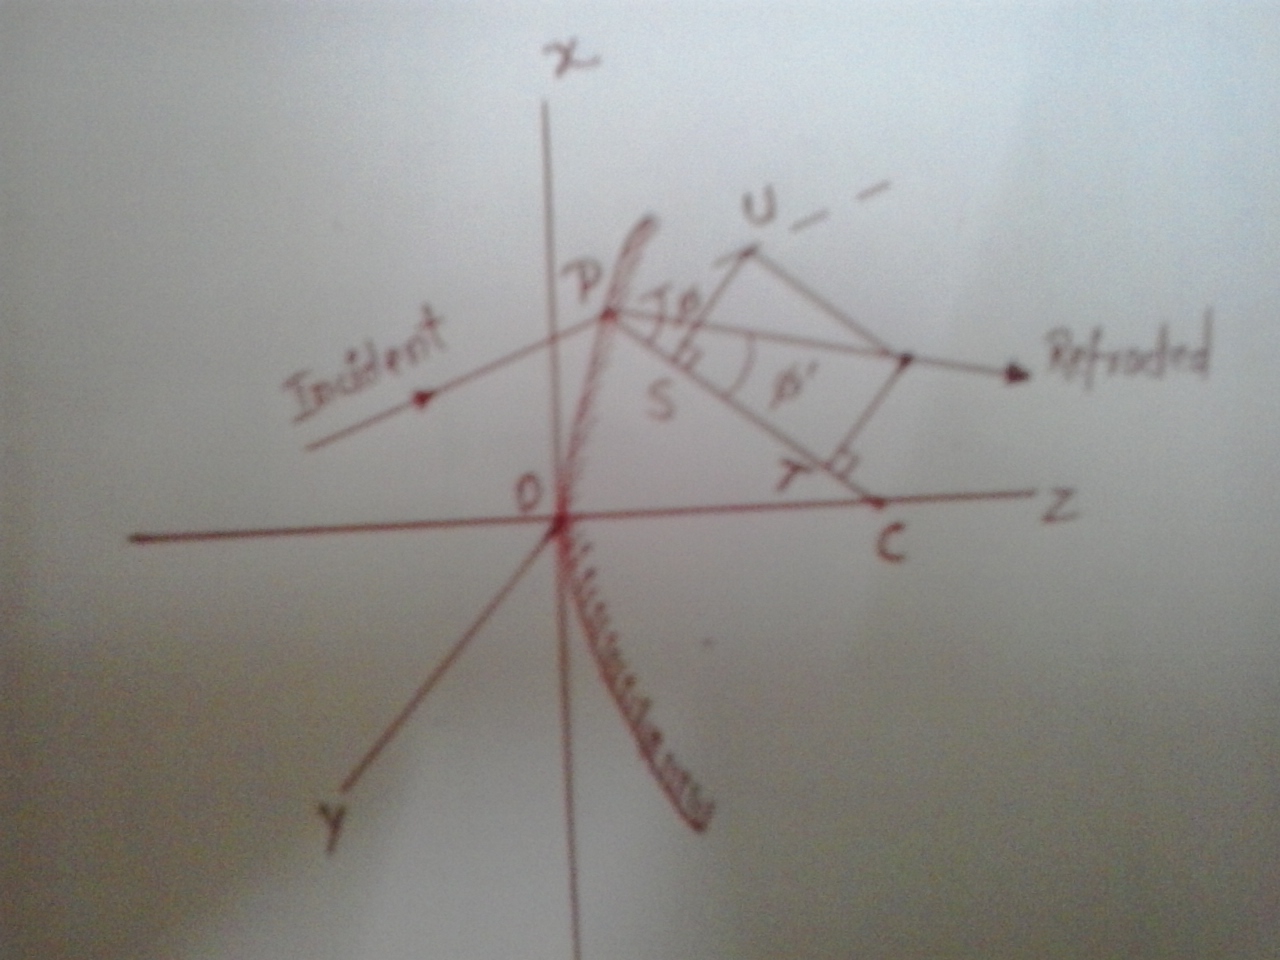 x
U
P
φ
Incident
Refracted
S
φ'
O
T
Z
C
Y